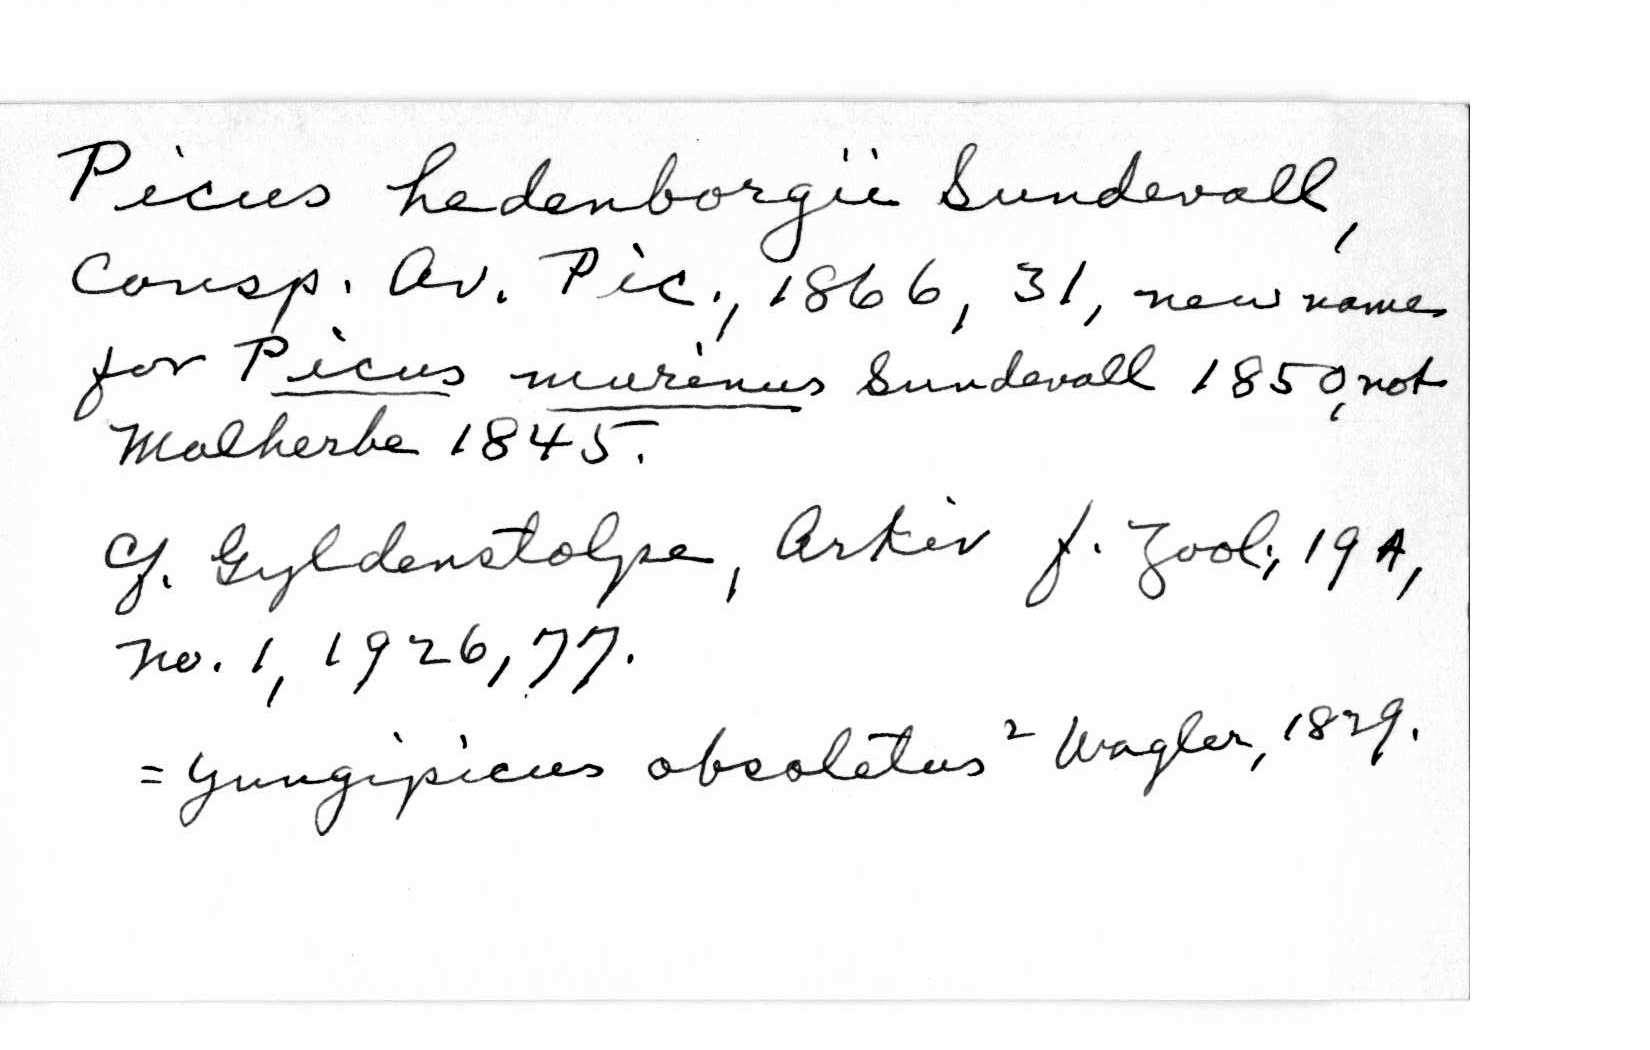 Picus hedenborgii Sundevall,
Consp. Av. Pic., 1866, 31, new name
for Picus murinus Sundevall 1850, not
Malherbe 1845.
Cf. Gyldenstolpe, Arkiv f. Zool., 19A,
No. 1, 1926, 77.
= Yungipicus obsoletus ² Wagler, 1829.